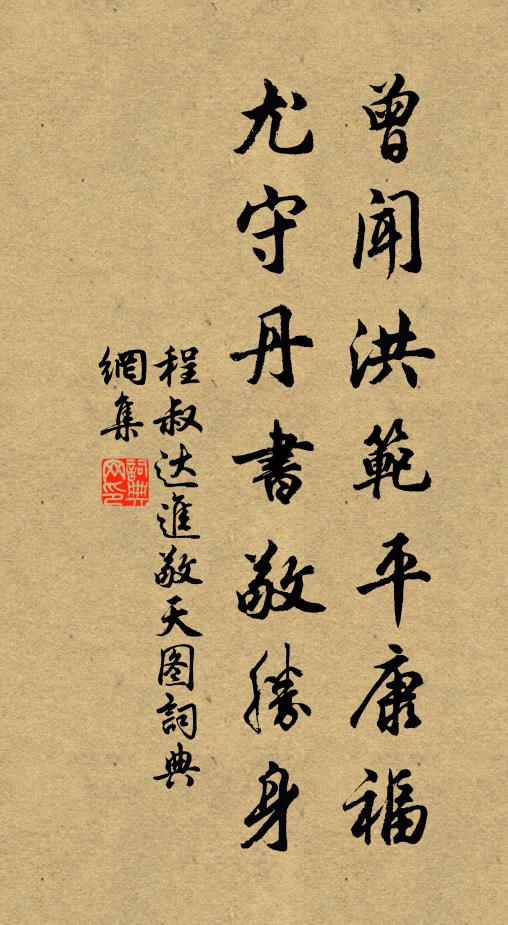 曾聞洪範平康福
尤守丹書敬勝身
程叔达進敬天图詞典
網集
詞典網印